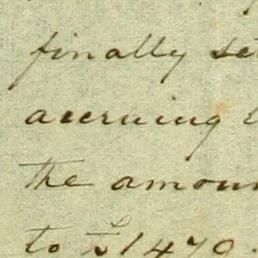 finally se
accruing
the amoun
to $1470.